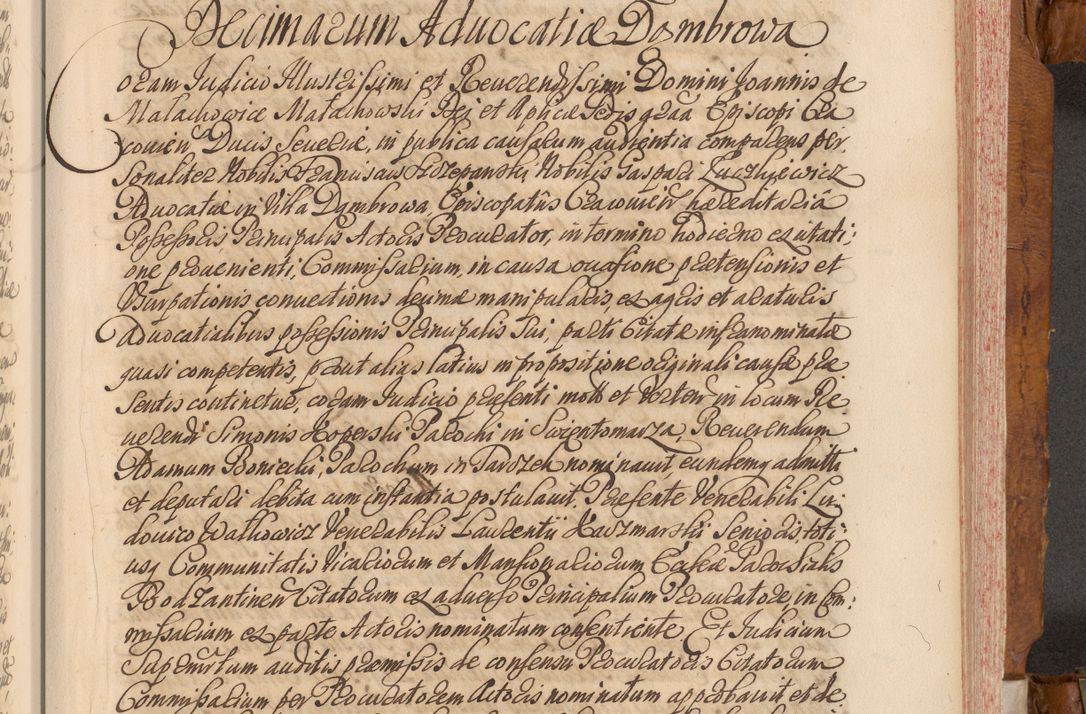 Decimarum Advocatiæ Dambrowa
Coram Judicio Illustrissimi et Reverendissimi Domini Joannis de
Małachowice Małachowski Dei et Aplicæ Sedis grãa Episcopi Cra
covien Ducis Severiæ, in publica causarum audientia comparens per
sonaliter Nobilis Franciscus Szczepanski Nobilis Gaspari
Advocatiæ in Villa Dambrowa, Episcopatûs Cracovien hæreditariâ
Possessoris Principalis Actoris Procurator, in termino hodierno ex citati:
one provenienti, Commissarium, in causa occasione prætensionis et
Usurpationis convectionis decimæ manipularis, ex agris et araturis
Advocatialibus possessionis Principalis sui, parti Citatæ infranominatæ
quasi competentis, prout alias latius in propositione originali causæ præ
sentis continetur, coram Judicio præsenti mota et verten in locum Re
verendi Simonis Koperski Parochi in Swientomarza, Reverendum
Adamum Boniecki, Parochum in Tarczek nominavit, eundemq admitti
et deputari debita cum instantia postulavit. Præsente Venerabili Lu:
dovico Wathowicz Venerabilis Laurentii Kaczmarski Senioris toti:
usq Communitatis Vicariorum et Mansionariorum Ecclæ Parochialis
Bodzantinen Citatorum ex adverso Principalium Procuratore, in Com:
missarium ex parte Actoris nominatum consentiente. Et Judicium
auditis præmissis de consensu Procuratoris Citatorum
Commissarium per Procuratorem Actoris nominatum approbavit et de